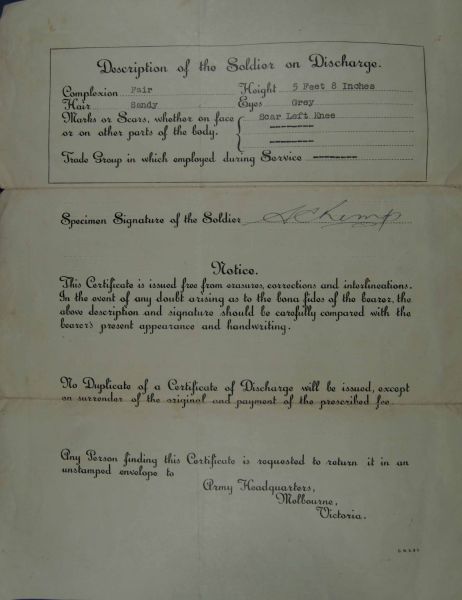 Description of the Soldier on Discharge.
Complexion Fair Height 5 Feet 8 Inches
Hair Sandy Eyes Grey
Marks or Scars, whether on face Scar Left Knee
or on other parts of the body.
Trade Group in which employed during Service
Specimen Signature of the Soldier
Notice.
This Certificate is issued free from erasures, corrections and interlineations.
In the event of any doubt arising as to the bona fides of the bearer, the
above description and signature should be carefully compared with the
bearer's present appearance and handwriting.
No Duplicate of a Certificate of Discharge will be issued, except
on surrender of the original and payment of the prescribed fee.
Any Person finding this Certificate is requested to return it in an
unstamped envelope to
Army Headquarters,
Melbourne,
Victoria.